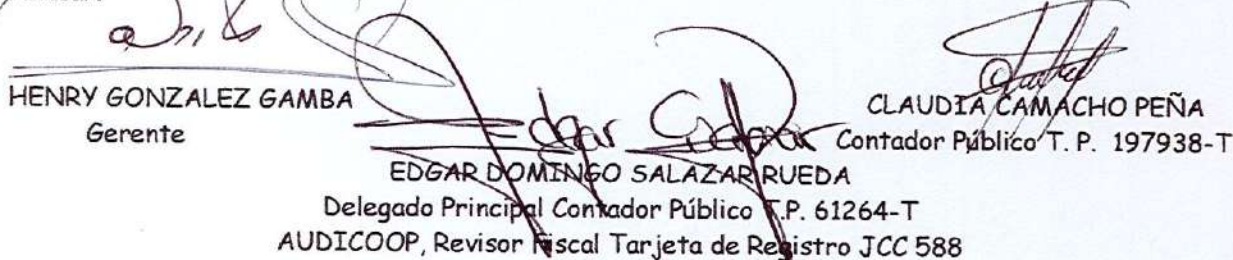 HENRY GONZALEZ GAMBA
Gerente
CLAUDIA CAMACHO PEÑA
Contador Público T. P. 197938-T
Edgar Salazar
EDGAR DOMINGO SALAZAR RUEDA
Delegado Principal Contador Público T.P. 61264-T
AUDICOOP, Revisor Fiscal Tarjeta de Registro JCC 588